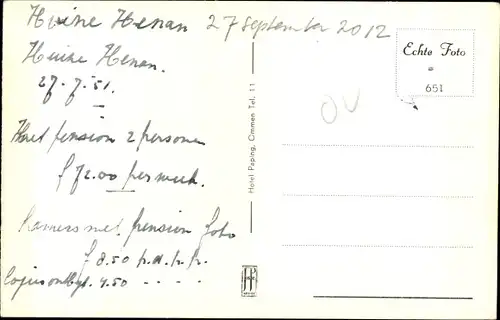 Huize Henan 27 september 2012
Huize Henan.
27-7-'51.
pension 2 personen
f 72.00 per week.
Kamers met pension foto
f 8.50 p.d.p.p.
4.50 - - - -
Echte Foto
651
OV
Hotel Paping, Ommen Tel. 11